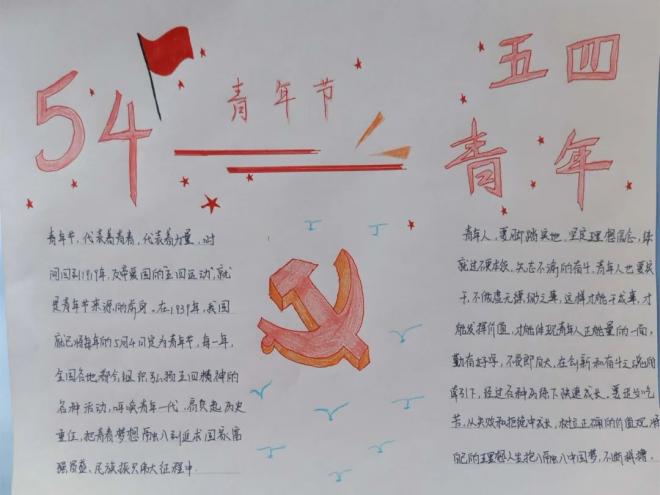 54
青年节
五四
青年
青年节，代表着青春，代表着力量，时
间回到1919年，反帝爱国的"五四运动"就
是青年节来源的前身。在1939年，我国
就已将每年的5月4日定为青年节，每一年，
全国各地都会组织弘扬五四精神的
各种活动，呼唤青年一代，肩负起历史
重任，把青春梦想融入到追求国家富
强昌盛、民族振兴伟大征程中.
青年人，要脚踏实地，坚定理想信念，练
就过硬本领，矢志不渝的奋斗，青年人也要实
干，不做虚无缥缈之事，这样才能干成事，才
能发挥价值，才能体现青年人正能量的一面，
勤有好学，不畏即有大，在创新和奋斗之魂的
牵引下，经过各种历练下快速成长。
节，从失败和拒绝中成长，树立正确的价值观，
自己的理想人生抱入融入中国梦，不断